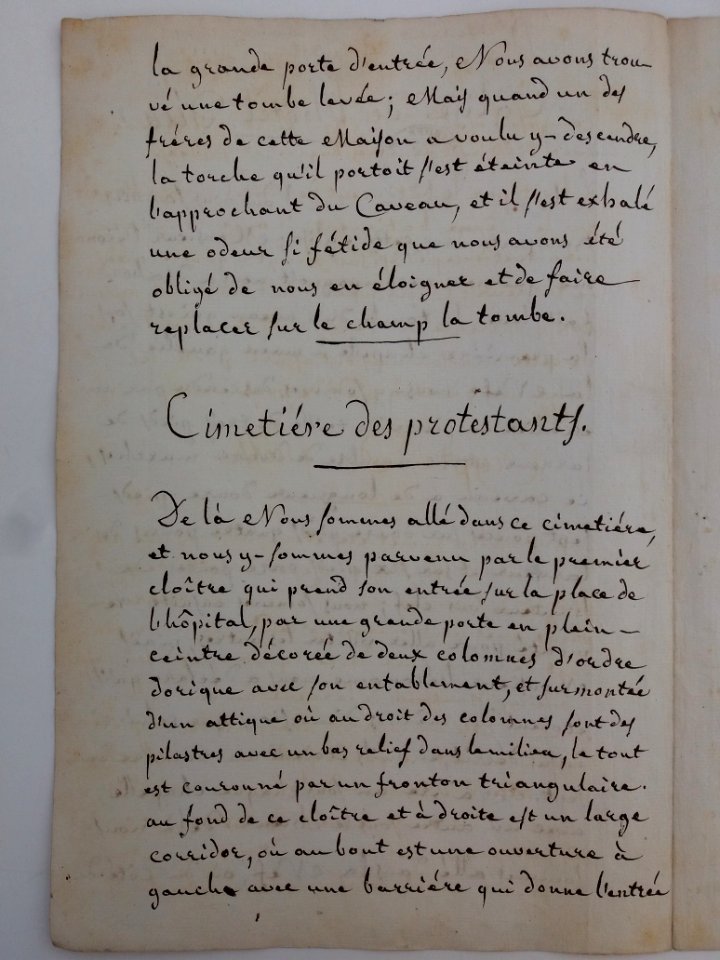 la grande porte d'entrée, Nous avons trou-
vé une tombe levée; Mais quand un des
fréres de cette Maison a voulu y-descendre,
la torche qu'il portoit s'est éteinte en
l'approchant du Caveau, et il s'est exhalé
une odeur si fétide que nous avons été
obligé de nous en éloigner et de faire
replacer sur le champ la tombe.
Cimetiére des protestants.
De là Nous sommes allé dans ce cimetiére,
et nous y-sommes parvenu par le premier
cloître qui prend son entrée sur la place de
l'hôpital, par une grande porte en plein-
ceintre décorée de deux colomnes d'ordre
dorique avec son entablement, et surmontée
d'un attique où au droit des colomnes sont des
pilastres avec un bas relief dans le milieu, le tout
est couronné par un fronton triangulaire.
au fond de ce cloître et à droite est un large
corridor, où au bout est une ouverture à
gauche avec une barriére qui donne l'entrée